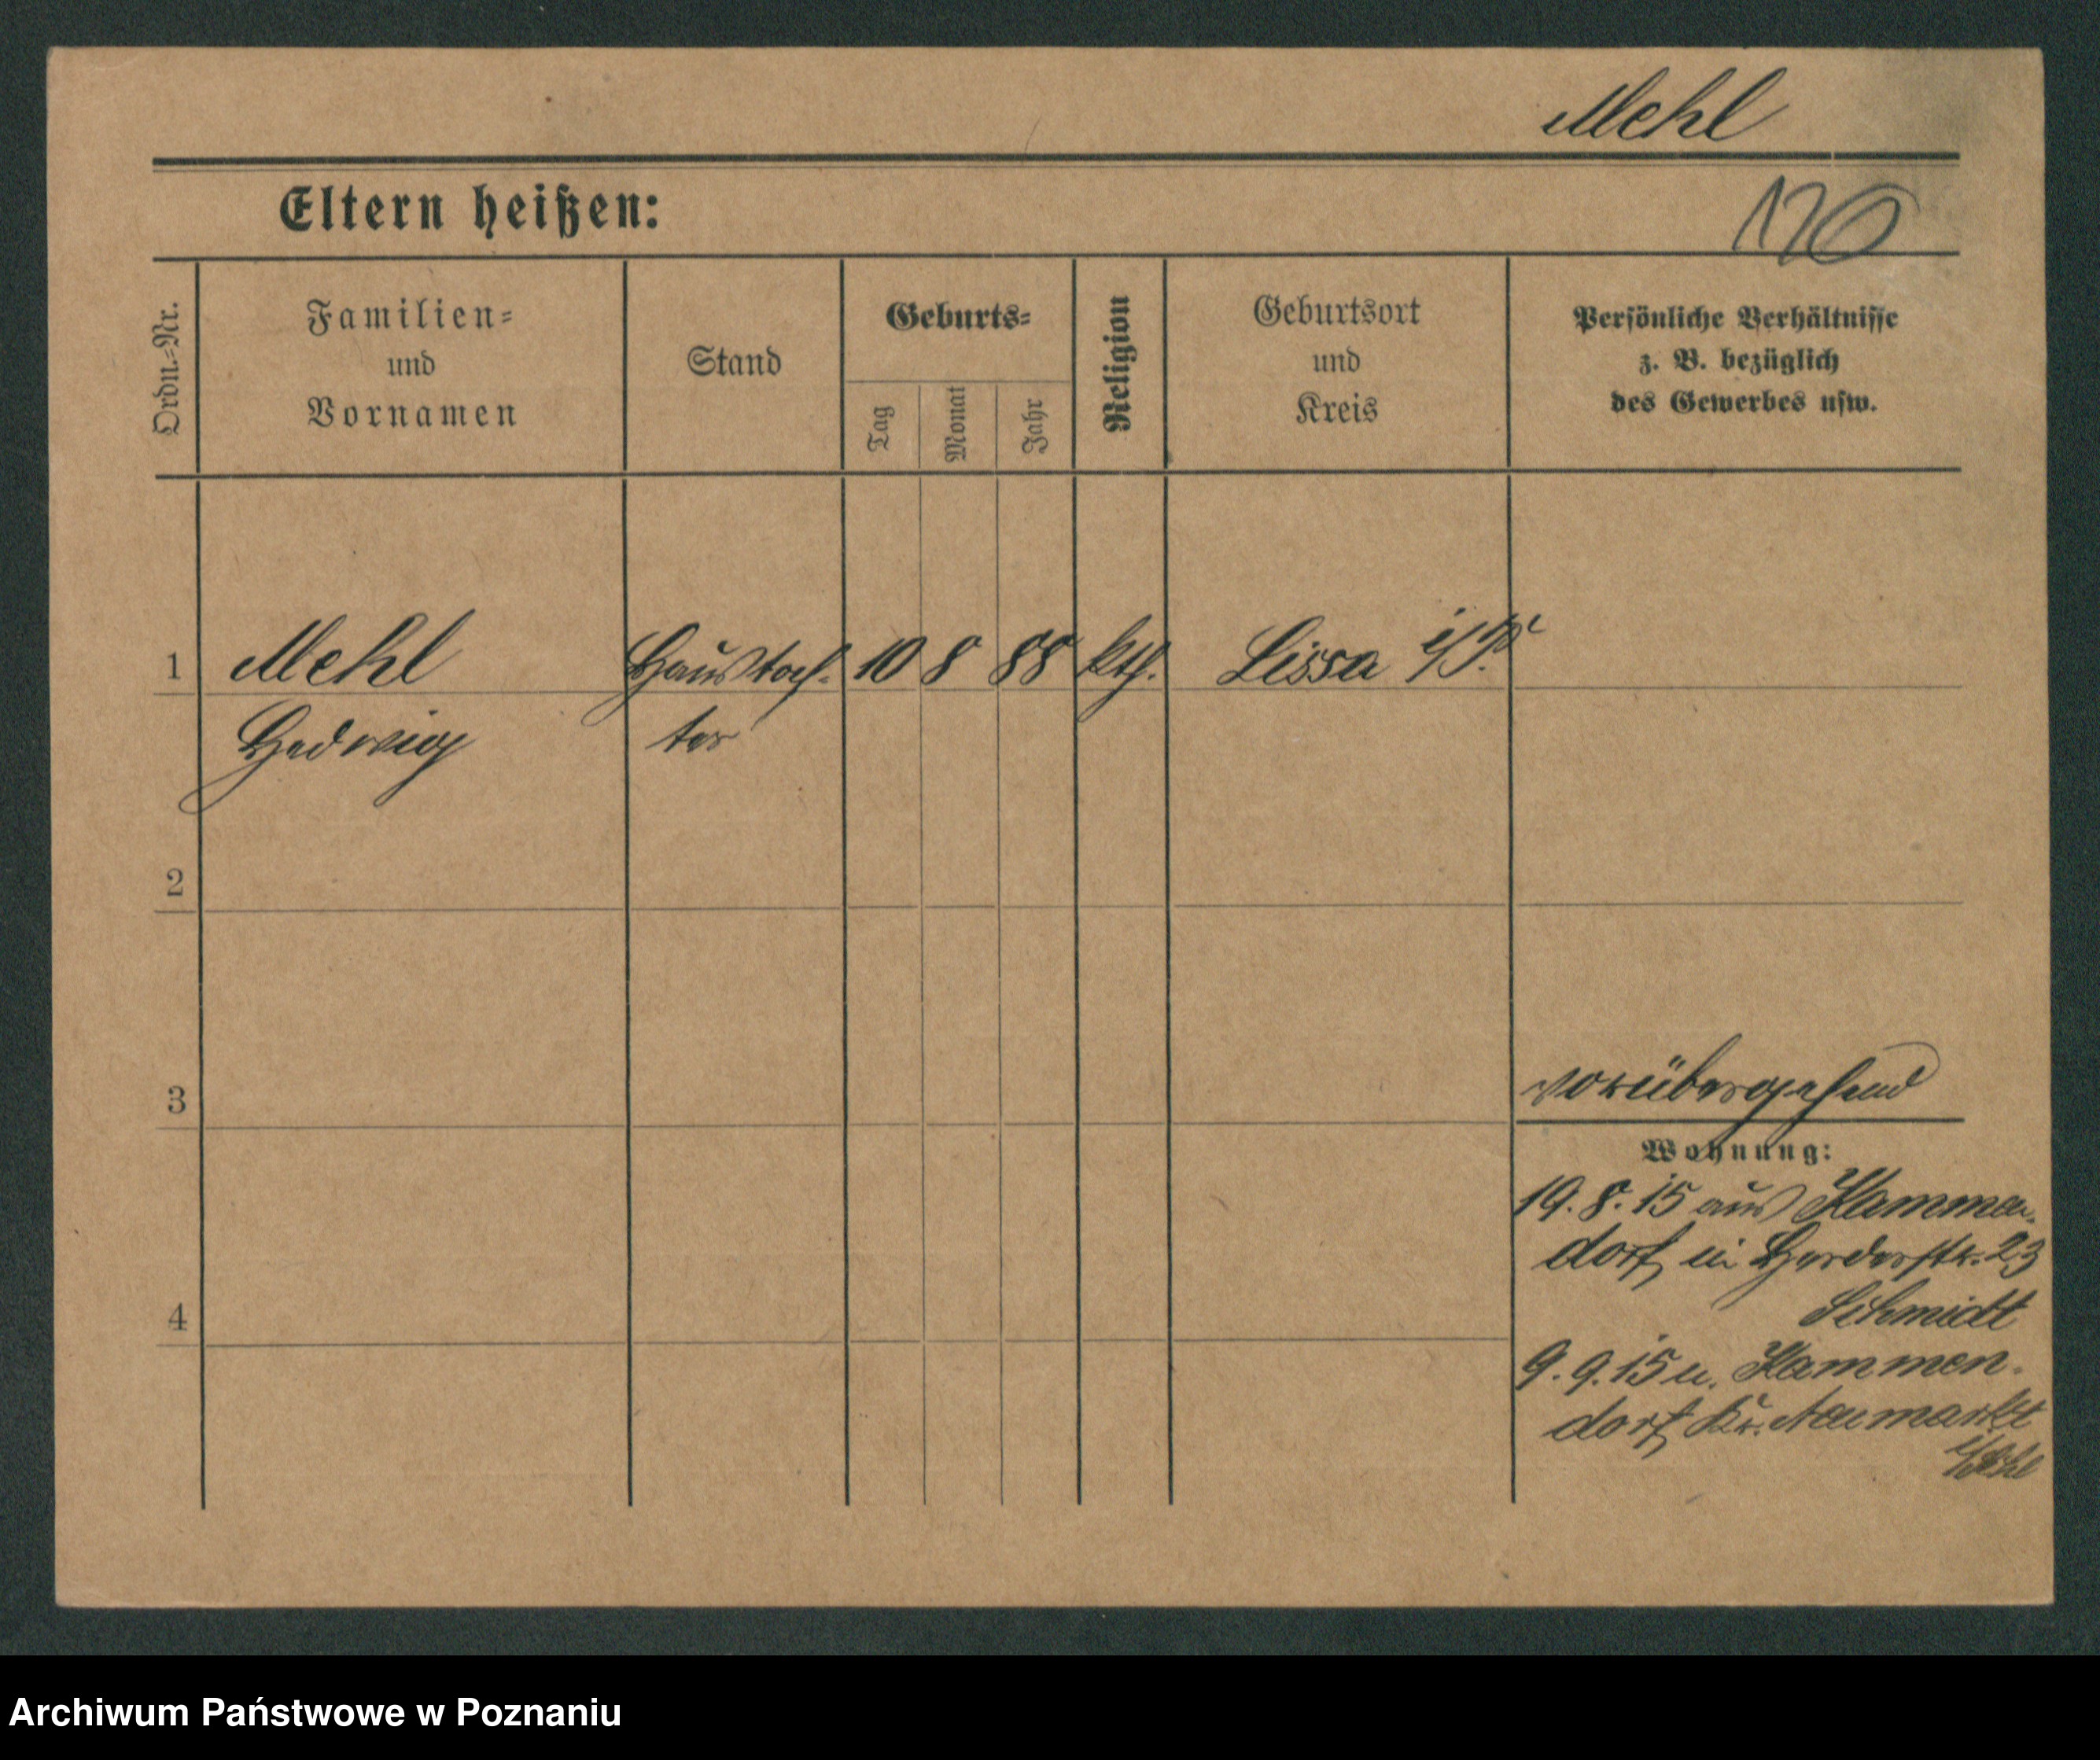 Mehl
Eltern heißen:
170
Ordn.=Nr.
Familien=
und
Vornamen
Stand
Geburts=
Tag
Monat
Jahr
Religion
Geburtsort
und
Kreis
Persönliche Verhältnisse
z. B. bezüglich
des Gewerbes usw.
1 Mehl Haustoch- 10 8 88 kth. Lissa i/P.
Hedwig ter
2
3
vorübergehend
Wohnung:
19. 8. 15 aus Kammen-
dorf in Herderstr. 23
Schmidt
4
9. 9. 15 n. Kammen-
dorf Kr. Neumarkt
i/Schl
Archiwum Państwowe w Poznaniu